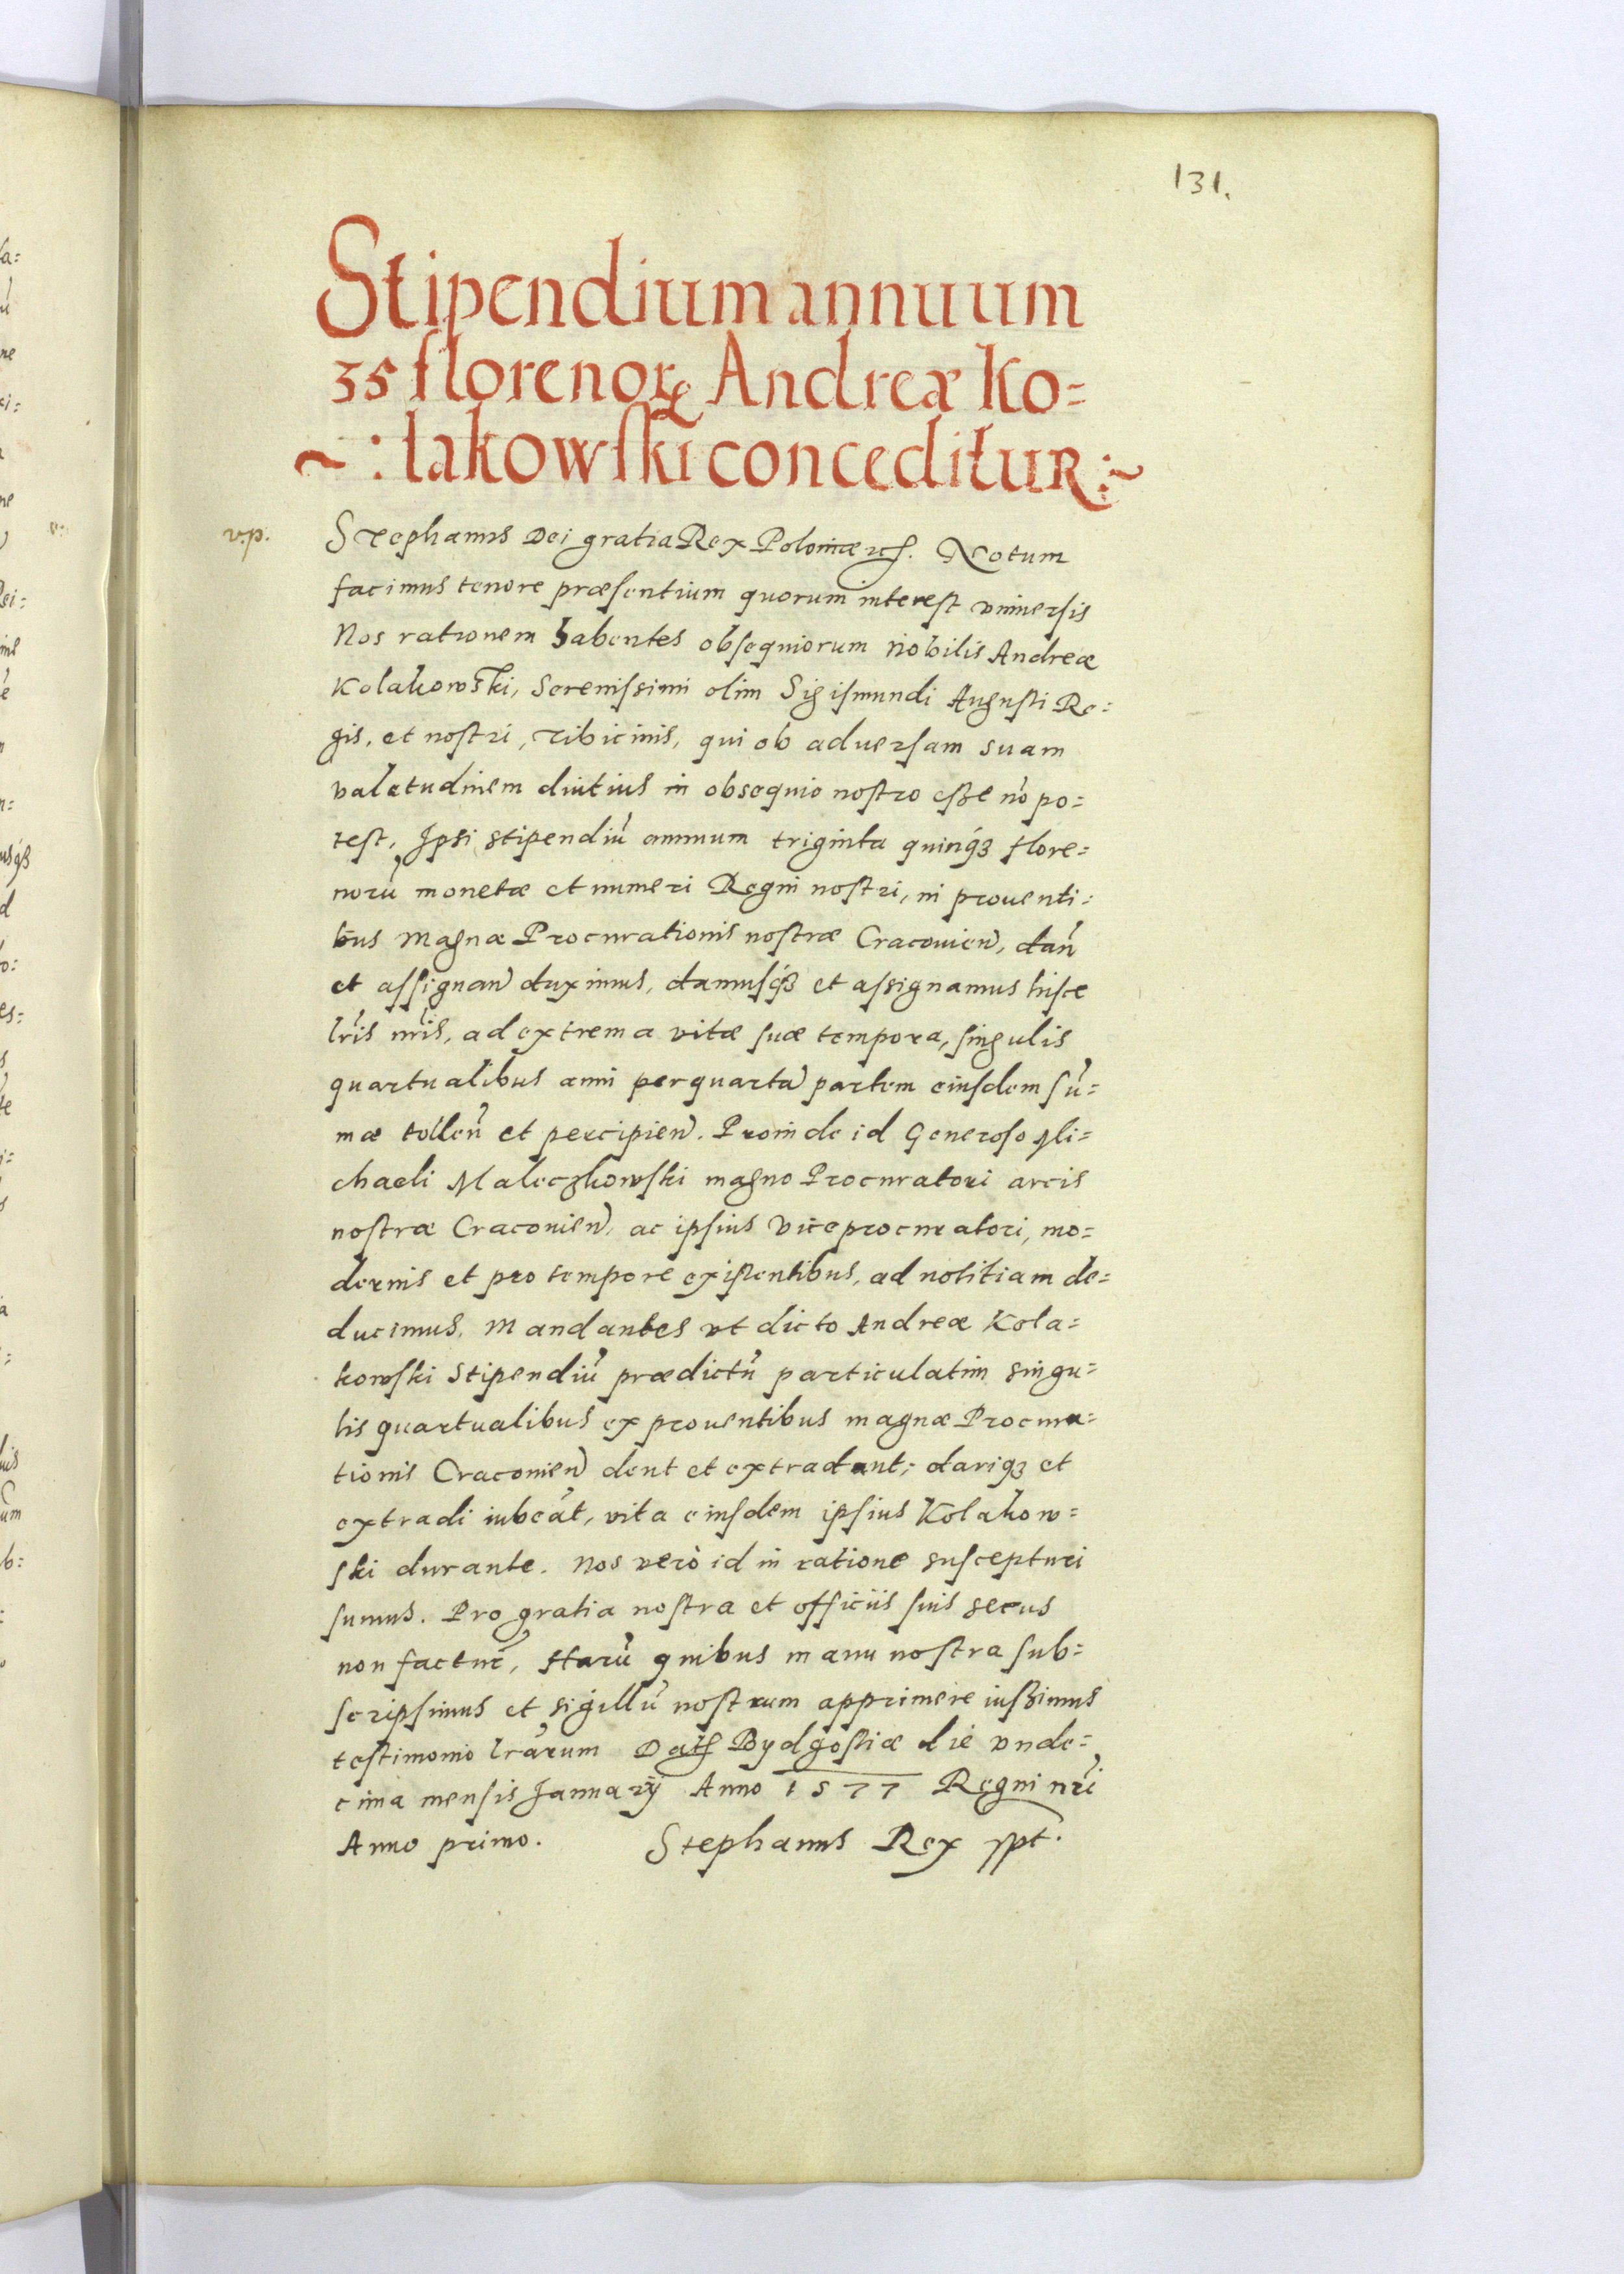 131.
Stipendium annuum
35 florenorꝝ Andreæ Ko=
~: lakowski conceditur :~
v.p.
Stephanus Dei gratia Rex Poloniæ etc. Notum
facimus tenore præsentium quorum interest vniuersis
Nos rationem habentes obsequiorum Nobilis Andreæ
Kolakowski, Serenissimi olim Sigismundi Augusti Re=
gis, et nostri, tibicinis, qui ob aduersam suam
valetudinem diutius in obsequio nostro esse nō po=
test, Ipsi stipendiū annuum triginta quinqȝ flore=
norū monetæ et numeri Regni nostri, in prouenti=
bus Magnæ Procurationis nostræ Cracovien̄, dan̄
et assignan̄ duximus, damusqȝ et assignamus hisce
lr̄is nr̄is, ad extrema vitæ suæ tempora, singulis
quartualibus anni per quartā partem eiusdem sū=
mæ tollen̄ et percipien̄. Proinde id Generoso Mi=
chaeli Maleczkowski magno Procuratori arcis
nostræ Cracouien̄, ac ipsius Viceprocuratori, mo=
dernis et pro tempore existentibus, ad notitiam de=
ducimus, Mandantes vt dicto Andreæ Kola=
kowski Stipendiū prædictū particulatim singu=
lis quartualibus ex prouentibus magnæ Procura=
tionis Cracouien̄ dent et extradant, dariqȝ et
extradi iubeāt, vita eiusdem ipsius Kolakow=
ski durante. Nos verò id in ratione suscepturi
sumus. Pro gratia nostra et officiis suis secus
non factur̄, Harū quibus manu nostra sub=
scripsimus et sigillū nostrum apprimere iussimus
testimonio lr̄arum Dat. Bydgostiæ die vnde=
cima mensis Januarij Anno 1577 Regni nr̄i
Anno primo. Stephanus Rex spt.